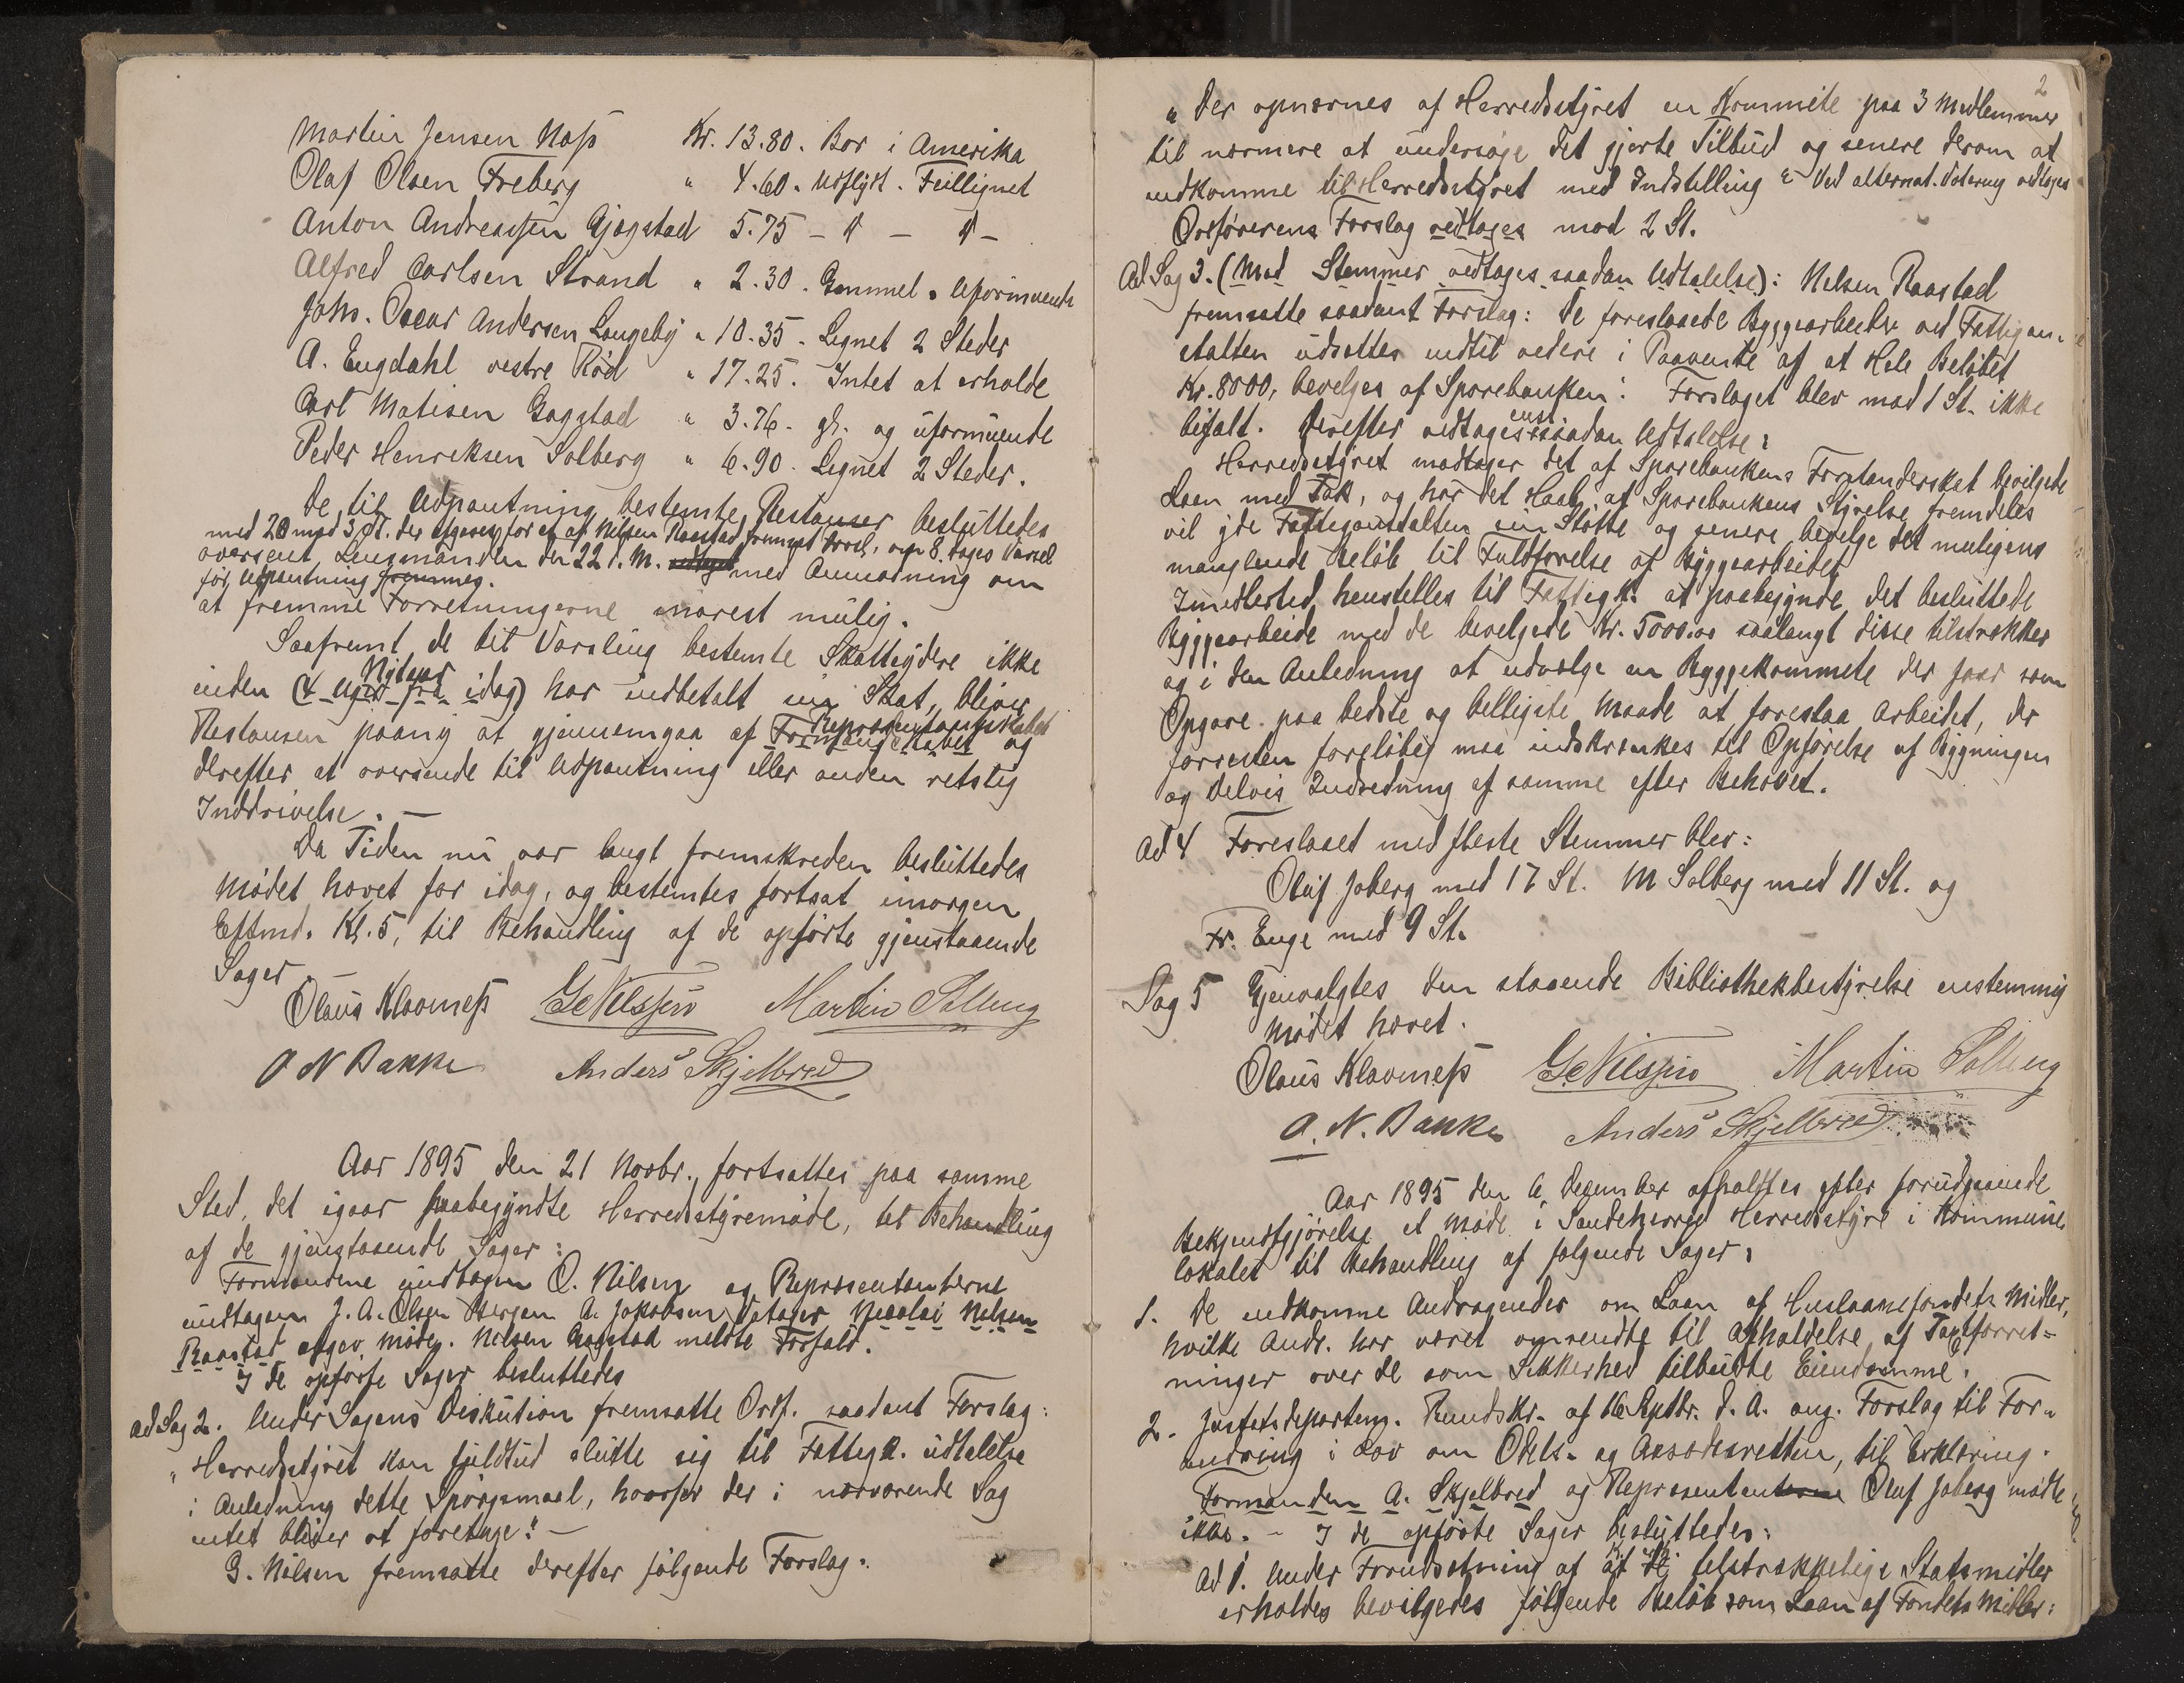 Martin Jensen Næss Kr. 13.80. Bor i Amerika
Olaf Olsen Freberg " 4.60. Udflyt. Feillignet
Anton Andreassen Gjøgstad 5.75 – " – " –
Alfred Carlsen Strand " 2.30. Gammel. Uformuende
Johs. Oscar Andersen Langeby " 10.35. Lignet 2 Steder
A. Engdahl vestre Rød " 17.25. Intet at erholde
Carl Matisen Gogstad " 3.76. gl. og uformuende
Peder Henriksen Solberg " 6.90. Lignet 2 Steder.
De til Udpantning bestemte Restanser besluttedes
med 20 mod 3 St. der afgaves for et af Nilsen Raastad fremsat Forsl. om 8 Dages Varsel
oversent Lensmanden den 22 d. M. med Anmodning om
før Udpantning fremmes.
at fremme Forretningerne snarest mulig.
Saafremt de til Varsling bestemte Skatteydere ikke
Nytaar
inden (4 Uger fra idag) har indbetalt sin Skat, bliver
Repræsentantskabet
Restansen paany at gjennemgaa af Formandskabet og
derefter at oversende til Udpantning eller anden retslig
Inddrivelse. –
Da Tiden nu var langt fremskreden besluttedes
Mødet hævet for idag, og bestemtes fortsat imorgen
Eftmd. Kl. 5, til Behandling af de opførte gjenstaaende
Sager.
Olaus Klavness G Nilssen Martin Solberg
O N Bakke Anders Skjelbred
Aar 1895 den 21 Novbr., fortsattes paa samme
Sted, det igaar paabegyndte Herredsstyremøde, til Behandling
af de gjenstaaende Sager:
Formændene undtagen O. Nilsen og Repræsentanterne
undtagen J. A. Olsen Bergan A. Jakobsen Nicolai Nilsen
Raastad afgav møde. Nilsen Raastad meldte Forfald.
I de opførte Sager besluttedes
ad Sag 2. Under Sagens Diskution fremsatte Ordf. saadant Forslag:
"Herredsstyret kan fuldtud slutte sig til Fattigk. udtalelse
i Anledning dette Spørgsmaal, hvorfor der i nærværende Sag
intet bliver at foretage." –
G. Nilsen fremsatte derefter følgende Forslag:
2
"Der opnævnes af Herredsstyret en Kommite paa 3 Medlemmer
til nærmere at undersøge det gjorte Tilbud og senere derom at
indkomme til Herredsstyret med Indstilling" Ved alternat. Votering vedtages
Ordførerens Forslag vedtages mod 2 St.
Ad Sag 3. (Mod Stemmer vedtages saadan Udtalelse): Nilsen Raastad
fremsatte saadant Forslag: De foreslaaede Byggearbeider ved Fattigan-
stalten udsættes indtil videre i Paavente af at Hele Beløbet
Kr. 8000, bevilges af Sparebanken: Forslaget blev mod 1 St. ikke
enst
bifalt. Derefter vedtages saadan Udtalelse:
Herredsstyret modtager det af Sparebankens Forstanderskab bevilgede
Laan med Tak, og har det Haab, at Sparebankens Styrelse fremdeles
vil yde Fattiganstalten sin Støtte og senere bevilge det muligens
manglende Beløb til Fuldførelse af Byggearbeidet
Imidlertid henstilles til Fattigk. at paabegynde det besluttede
Byggearbeide med de bevilgede Kr. 5000.00 saalangt disse tilstrækker
og i den Anledning at udvælge en Byggekommite der faar som
Opgave paa bedste og billigste Maade at forestaa Arbeidet, der
forresten foreløbig maa indskrænkes til Opførelse af Bygningen
og delvis Indredning af samme efter Behovet.
Ad 4 Foreslaaet med fleste Stemmer blev:
Oluf Joberg med 17 St. M Solberg med 11 St. og
Fr. Enge med 9 St.
Sag 5 Gjenvalgtes den staaende Bibliothekbestyrelse enstemmig
Mødet hævet.
Olaus Klavness G Nilssen Martin Solberg
O. N. Bakke Anders Skjelbred
Aar 1895 den 6 December afholdtes efter forudgaaende
Bekjendtgjørelse et Møde i Sandeherred Herredsstyre i Kommune
lokalet til Behandling af følgende Sager:
1. De indkomne Andragender om Laan af Huslaanefondets Midler,
hvilke Andr. har været omsendte til Afholdelse af Taxtforret-
ninger over de som Sikkerhed tilbudte Eiendomme.
2. Justitsdepartem. Rundskr. af 16 Septbr. d. A. ang. Forslag til For-
andring i Lov om Odels- og Aasædesretten, til Erklæring.
Formanden A. Skjelbred og Repræsentanterne Oluf Joberg mødte
ikke. – I de opførte Sager besluttedes:
Ad 1. Under Forudsætning af at tilstrækkelige Statsmidler
erholdes bevilgedes følgende Beløb som Laan af Fondets Midler: